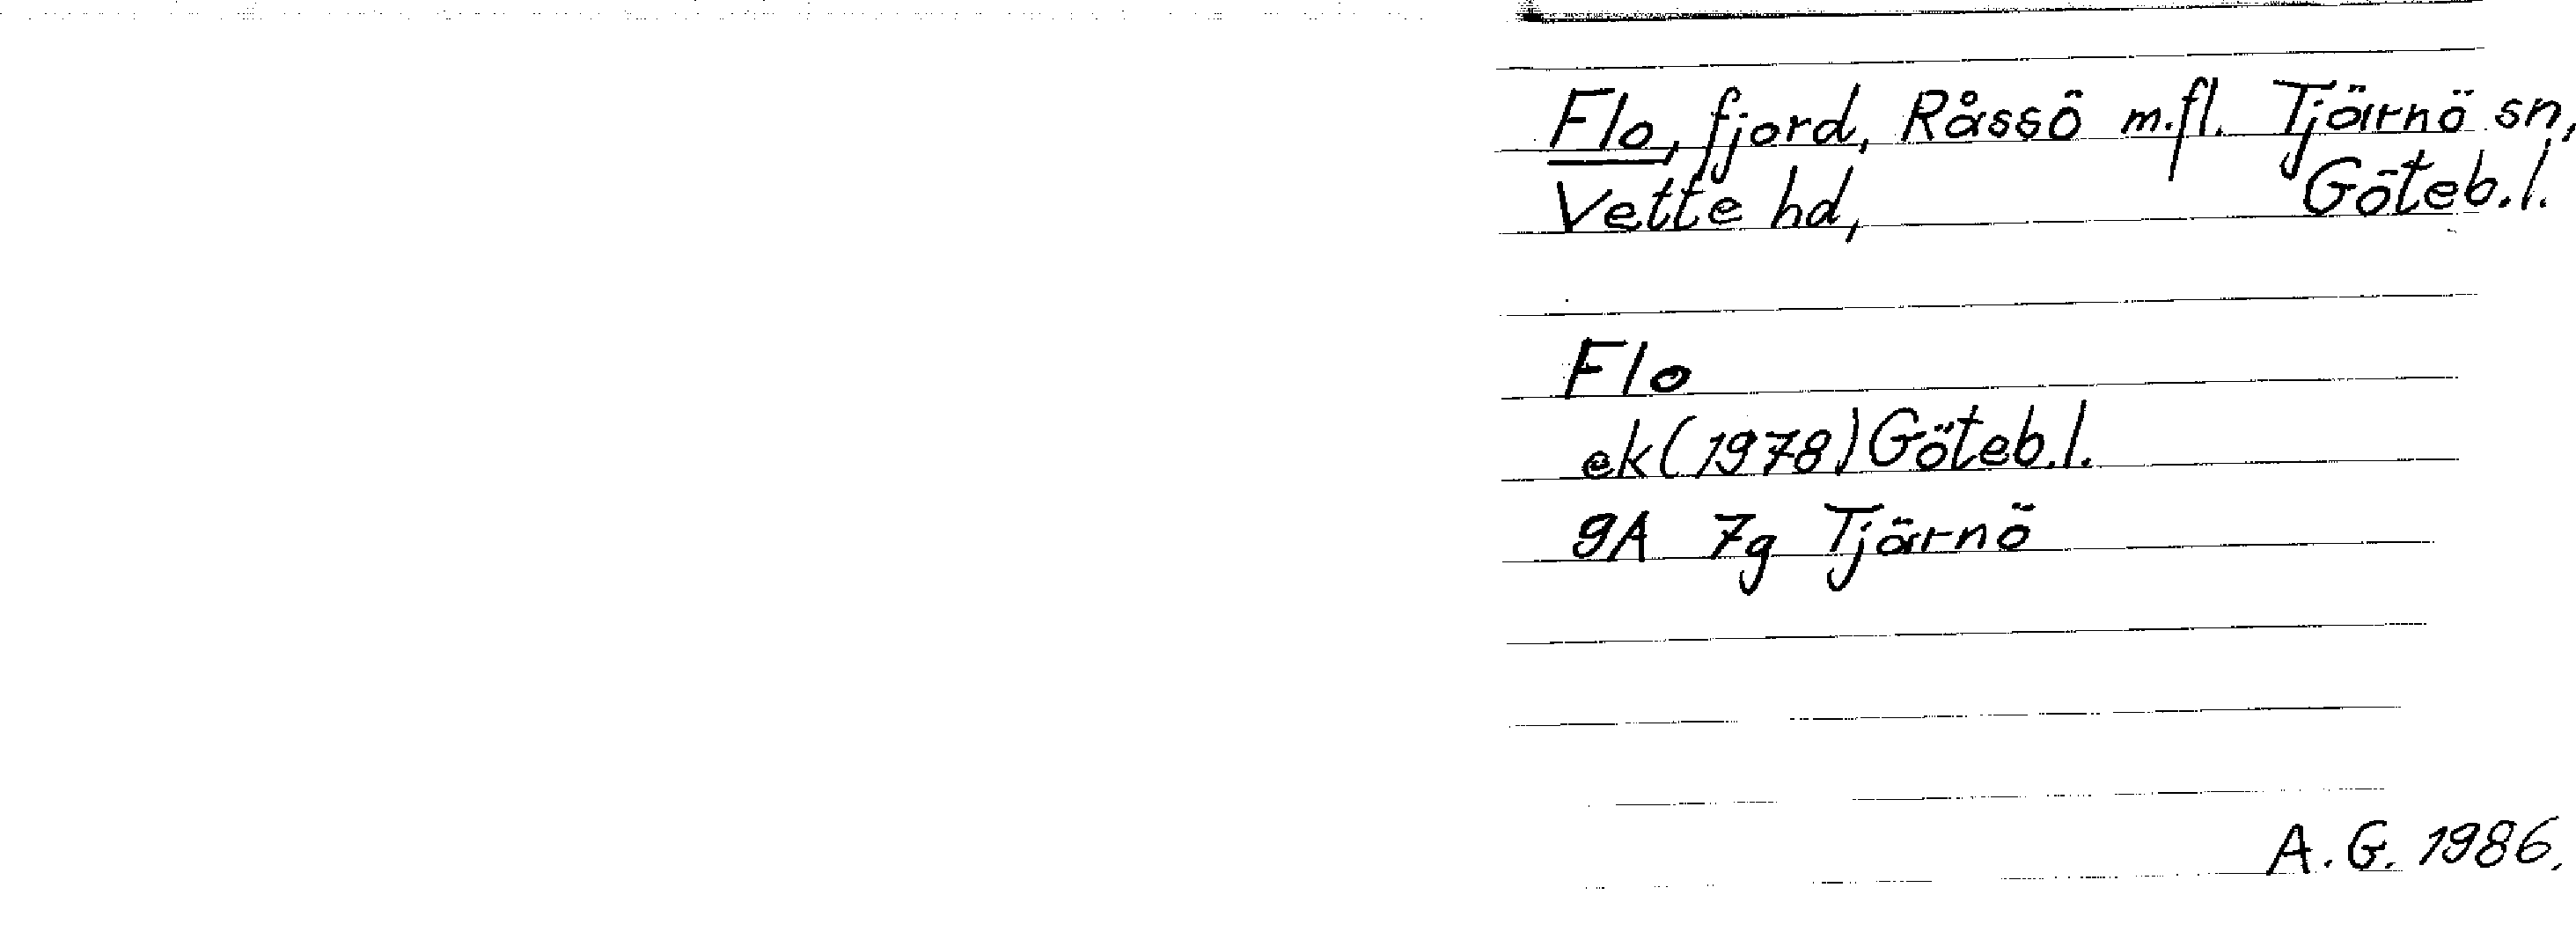 Flo, fjord, Råssö m.fl. Tjärnö sn,
Vette hd, Göteb.l.
Flo
ek (1978) Göteb.l.
9A 7g Tjärnö
A.G. 1986.